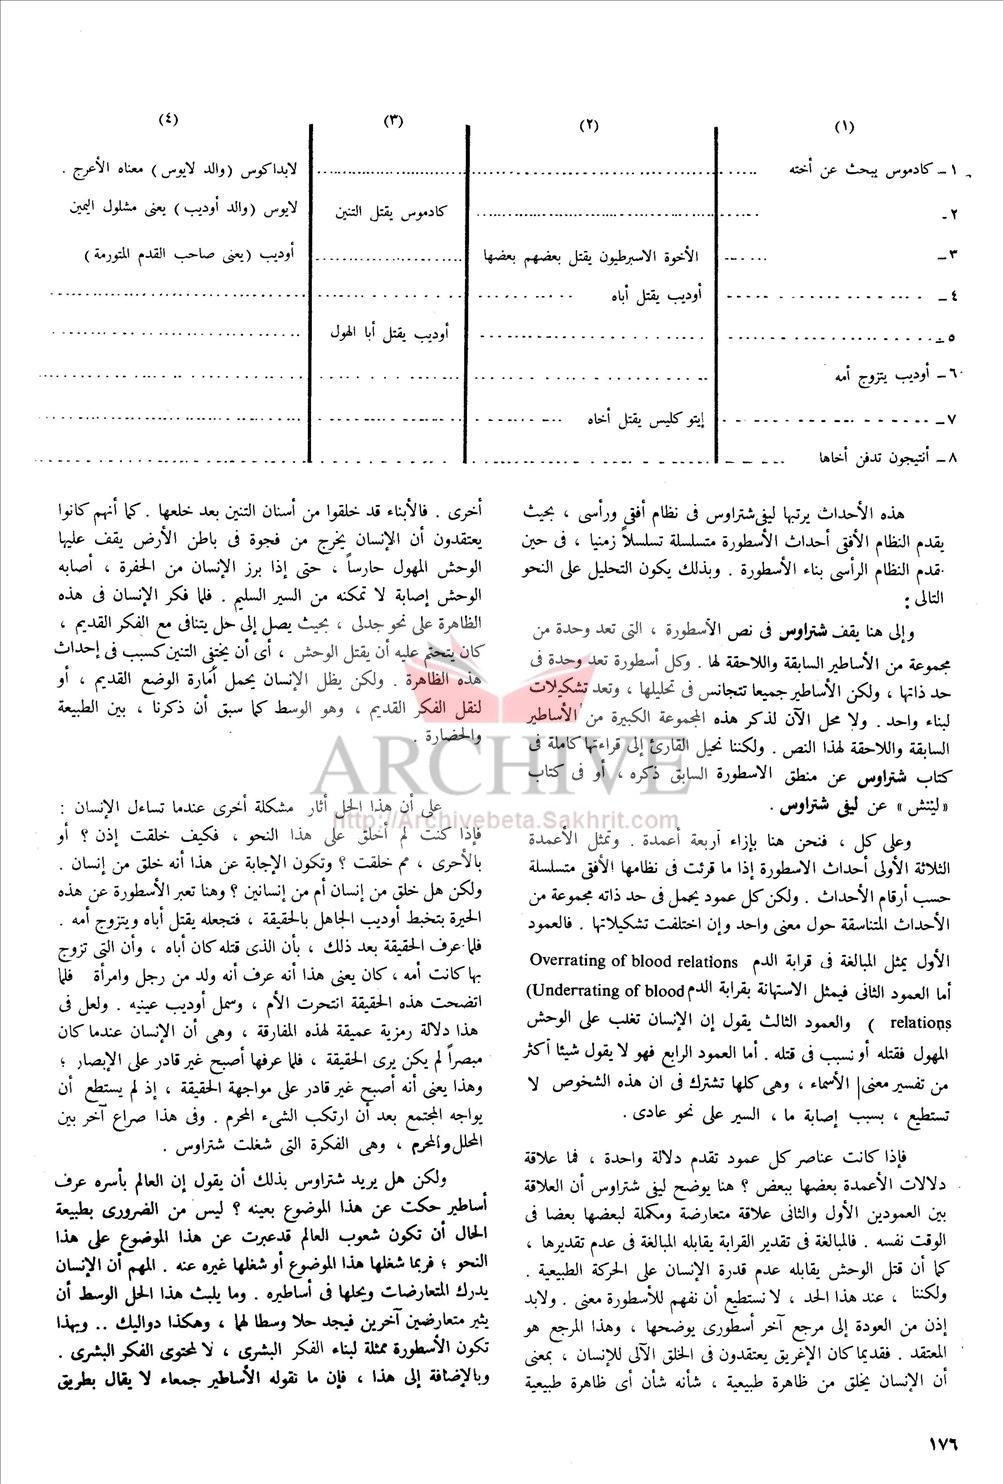 (١) (٢) (٣) (٤)
١ـ كادموس يبحث عن أخته لابداكوس (والد لايوس) معناه الأعرج .
٢ـ كادموس يقتل التنين لايوس (والد أوديب) يعنى مشلول اليمين
٣ـ الأخوة الاسبرطيون يقتل بعضهم بعضها أوديب (يعنى صاحب القدم المتورمة)
٤ـ أوديب يقتل أباه
٥ـ أوديب يقتل أبا الهول
٦ـ أوديب يتزوج أمه
٧ـ إيتوكليس يقتل أخاه
٨ـ أنتيجون تدفن أخاها
هذه الأحداث يرتبها ليفى شتراوس فى نظام أفقى ورأسى ، بحيث
يقدم النظام الأفقى أحداث الأسطورة متسلسلة تسلسلاً زمنيا ، فى حين
يقدم النظام الرأسى بناء الأسطورة . وبذلك يكون التحليل على النحو
التالى :
وإلى هنا يقف شتراوس فى نص الأسطورة ، التى تعد وحدة من
مجموعة من الأساطير السابقة واللاحقة لها . وكل أسطورة تعد وحدة فى
حد ذاتها ، ولكن الأساطير جميعا تتجانس فى تحليلها ، وتعد تشكيلات
لبناء واحد . ولا محل الآن لذكر هذه المجموعة الكبيرة من الأساطير
السابقة واللاحقة لهذا النص . ولكننا نحيل القارئ إلى قراءتها كاملة فى
كتاب شتراوس عن منطق الاسطورة السابق ذكره ، أو فى كتاب
«ليتش» عن ليفى شتراوس .
وعلى كل ، فنحن هنا بإزاء أربعة أعمدة . وتمثل الأعمدة
الثلاثة الأولى أحداث الاسطورة إذا ما قرئت فى نظامها الأفقى متسلسلة
حسب أرقام الأحداث . ولكن كل عمود يحمل فى حد ذاته مجموعة من
الأحداث المتناسقة حول معنى واحد وإن اختلفت تشكيلاتها . فالعمود
الأول يمثل المبالغة فى قرابة الدم Overrating of blood relations
أما العمود الثانى فيمثل الاستهانة بقرابة الدم Underrating of blood)
relations ) والعمود الثالث يقول إن الإنسان تغلب على الوحش
المهول فقتله أو نسبب فى قتله . أما العمود الرابع فهو لا يقول شيئا أكثر
من تفسير معنى الأسماء ، وهى كلها تشترك فى ان هذه الشخوص لا
تستطيع ، بسبب إصابة ما ، السير على نحو عادى .
فإذا كانت عناصر كل عمود تقدم دلالة واحدة ، فما علاقة
دلالات الأعمدة بعضها ببعض ؟ هنا يوضح ليفى شتراوس أن العلاقة
بين العمودين الأول والثانى علاقة متعارضة ومكملة لبعضها بعضا فى
الوقت نفسه . فالمبالغة فى تقدير القرابة يقابله المبالغة فى عدم تقديرها ،
كما أن قتل الوحش يقابله عدم قدرة الإنسان على الحركة الطبيعية .
ولكننا ، عند هذا الحد ، لا نستطيع أن نفهم للأسطورة معنى . ولابد
إذن من العودة إلى مرجع آخر أسطورى يوضحها ، وهذا المرجع هو
المعتقد . فقديما كان الإغريق يعتقدون فى الخلق الآلى للإنسان ، بمعنى
أن الإنسان يخلق من ظاهرة طبيعية ، شأنه شأن أى ظاهرة طبيعية
أخرى . فالأبناء قد خلقوا من أسنان التنين بعد خلعها . كما أنهم كانوا
يعتقدون أن الإنسان يخرج من فجوة فى باطن الأرض يقف عليها
الوحش المهول حارساً ، حتى إذا برز الإنسان من الحفرة ، أصابه
الوحش إصابة لا تمكنه من السير السليم . فلما فكر الإنسان فى هذه
الظاهرة على نحو جدلى ، بحيث يصل إلى حل يتنافى مع الفكر القديم ،
كان يتحتم عليه أن يقتل الوحش ، أى أن يختفى التنين كسبب فى إحداث
هذه الظاهرة . ولكن يظل الإنسان يحمل أمارة الوضع القديم ، أو
لنقل الفكر القديم ، وهو الوسط كما سبق أن ذكرنا ، بين الطبيعة
والحضارة .
على أن هذا الحل أثار مشكلة أخرى عندما تساءل الإنسان :
فإذا كنت لم أخلق على هذا النحو ، فكيف خلقت إذن ؟ أو
بالأحرى ، مم خلقت ؟ وتكون الإجابة عن هذا أنه خلق من إنسان .
ولكن هل خلق من إنسان أم من إنسانين ؟ وهنا تعبر الأسطورة عن هذه
الحيرة بتخبط أوديب الجاهل بالحقيقة ، فتجعله يقتل أباه ويتزوج أمه .
فلما عرف الحقيقة بعد ذلك ، بأن الذى قتله كان أباه ، وأن التى تزوج
بها كانت أمه ، كان يعنى هذا أنه عرف أنه ولد من رجل وامرأة فلما
اتضحت هذه الحقيقة انتحرت الأم ، وسمل أوديب عينيه . ولعل فى
هذا دلالة رمزية عميقة لهذه المفارقة ، وهى أن الإنسان عندما كان
مبصراً لم يكن يرى الحقيقة ، فلما عرفها أصبح غير قادر على الإبصار ؛
وهذا يعنى أنه أصبح غير قادر على مواجهة الحقيقة ، إذ لم يستطع أن
يواجه المجتمع بعد أن ارتكب الشىء المحرم . وفى هذا صراع آخر بين
المحلل والمحرم ، وهى الفكرة التى شغلت شتراوس .
ولكن هل يريد شتراوس بذلك أن يقول إن العالم بأسره عرف
أساطير حكت عن هذا الموضوع بعينه ؟ ليس من الضرورى بطبيعة
الحال أن تكون شعوب العالم قد عبرت عن هذا الموضوع على هذا
النحو ؛ فربما شغلها هذا الموضوع أو شغلها غيره عنه . المهم أن الإنسان
يدرك المتعارضات ويحلها فى أساطيره . وما يلبث هذا الحل الوسط أن
يثير متعارضين آخرين فيجد حلا وسطا لهما ، وهكذا دواليك .. وبهذا
تكون الأسطورة ممثلة لبناء الفكر البشرى ، لا لمحتوى الفكر البشرى .
وبالإضافة إلى هذا ، فإن ما تقوله الأساطير جمعاء لا يقال بطريق
ARCHIVE
http://Archivebeta.Sakhrit.com
١٧٦